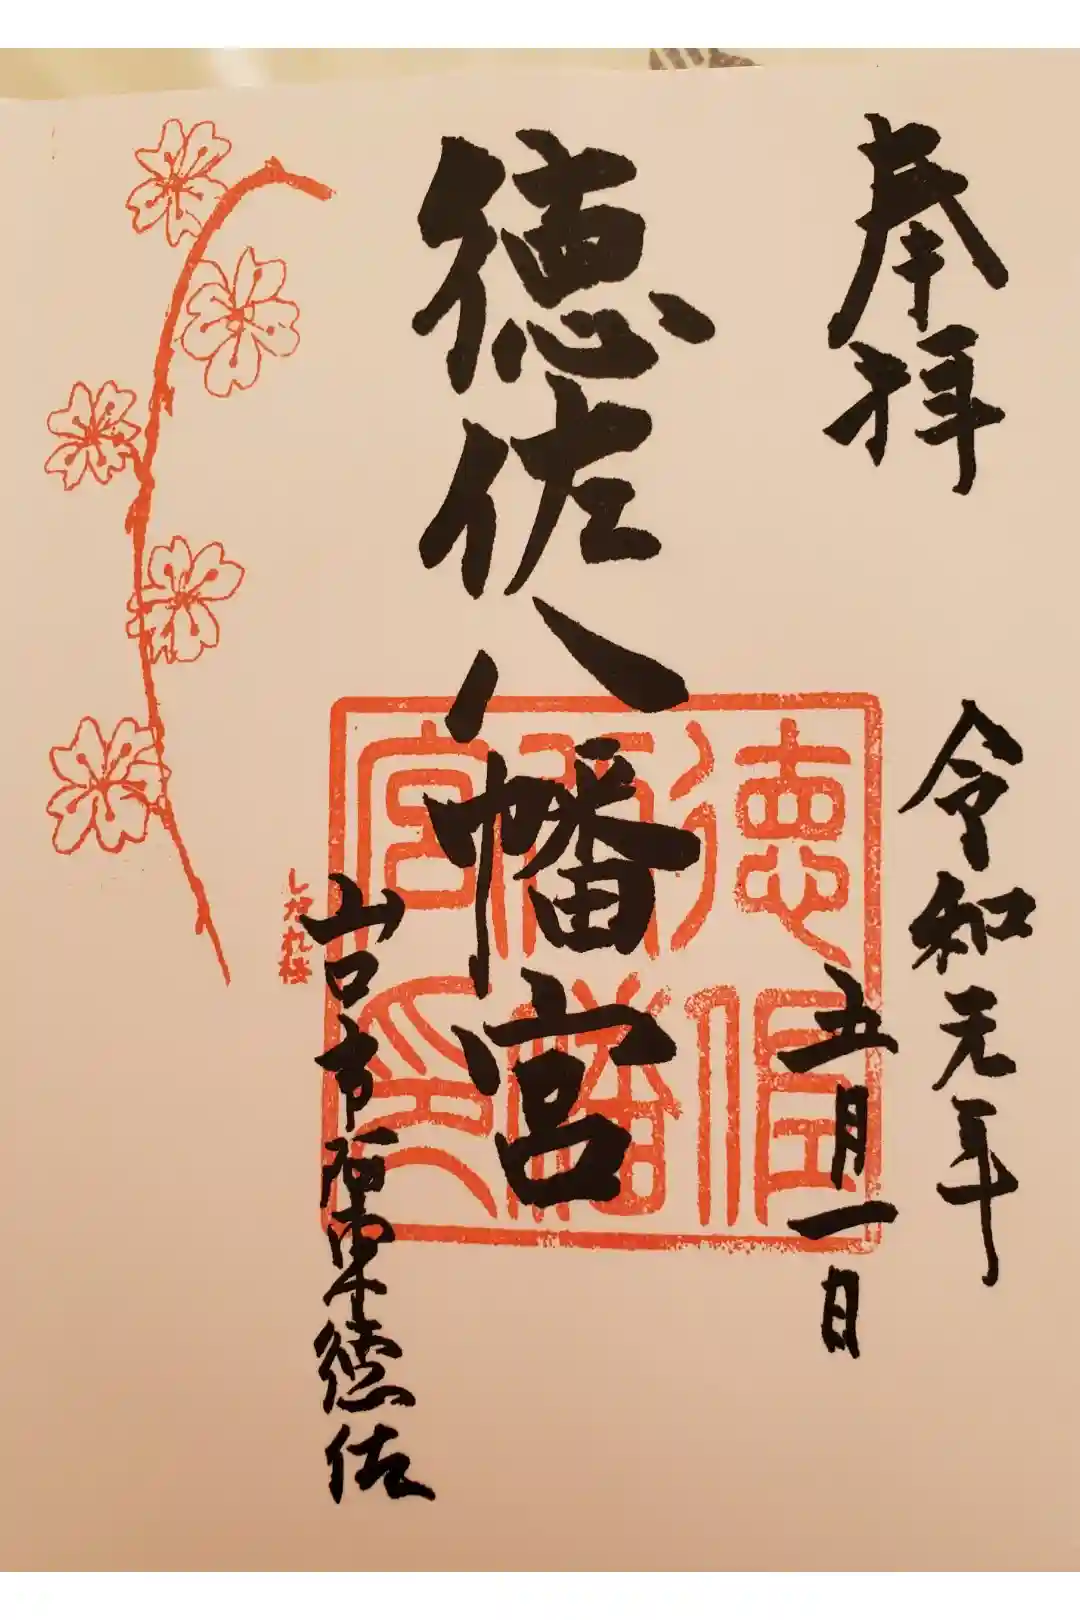 奉拝
令和元年
五月一日
徳佐八幡宮
徳佐
八幡
宮印
山口市阿東徳佐
しだれ桜